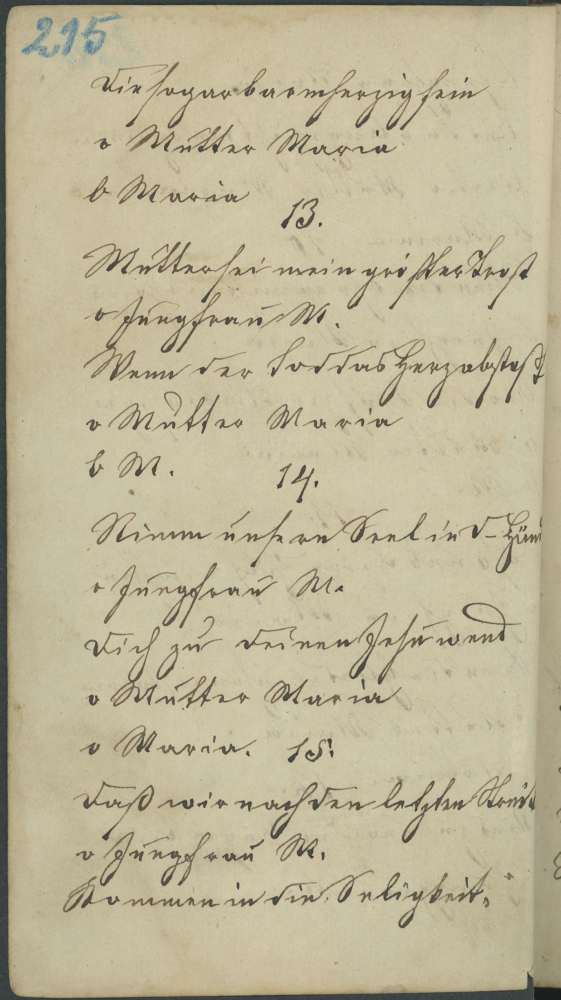 215
Die sogar barmherzig sein
o Mutter Maria
b Maria
13.
Mutter sei mein größter Trost
o Jungfrau M.
Wenn der Tod das Herz abstoßt
o Mutter Maria
b M.
14.
Nimm unsern Seel in d- Händ
o Jungfrau M.
Dich zu deinen Jesu wend
o Mutter Maria
o Maria. 15.
Daß wir nach den letzten Streit
o Jungfrau M.
Kommen in die Seligkeit.